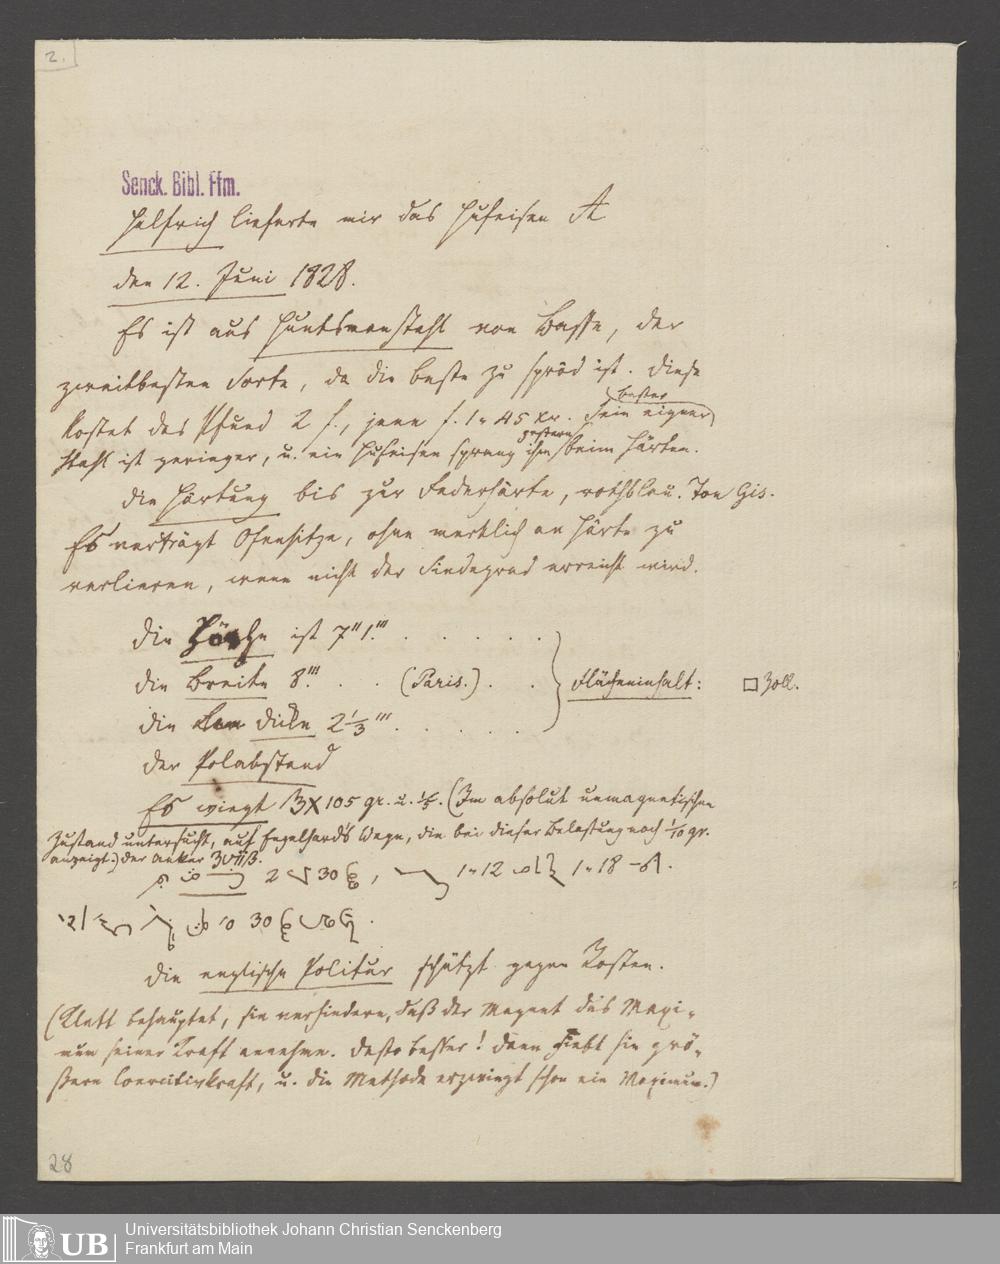 2.
Senck. Bibl. Ffm.
Helfrich lieferte mir das Hufeisen A
den 12. Juni 1828.
Es ist aus Huntsmanstahl von Basse, der
zweitbesten Sorte, da die beste zu spröd ist. Diese
kostet das Pfund 2 f., jene f. 1 „ 45 xr. Sein eigner
bester
Stahl ist geringer, u. ein Hufeisen sprang ihm beim Härten.
gestern
Die Härtung bis zur Federhärte, rothblau. Ton Gis.
Es verträgt Ofenhitze, ohne merklich an Härte zu
verlieren, wenn nicht der Siedegrad erreicht wird.
Die Höhe ist 7" 1."' . . . . .
die Breite 8."' . . (Paris.) . . Flächeninhalt: □ Zoll.
die Dicke 2 1/3"' . . . . .
der Polabstand
Es wiegt 13 X 105 gr. u. (Im absolut unmagnetischen
Zustand untersucht, auf Engelhard's Wage, die bei dieser Belastung noch 1/10 gr.
anzeigt.) der Anker
2 30 , 1 „ 12 1 „ 18
30
Die englische Politur schützt gegen Rosten.
(Klatt behauptet, sie verhindere, daß der Magnet das Maxi-
mum seiner Kraft annehme. Desto besser! denn giebt sie grö-
ßere Coercitivkraft, u. die Methode erzwingt schon ein Maximum.)
28
UB
Universitätsbibliothek Johann Christian Senckenberg
Frankfurt am Main